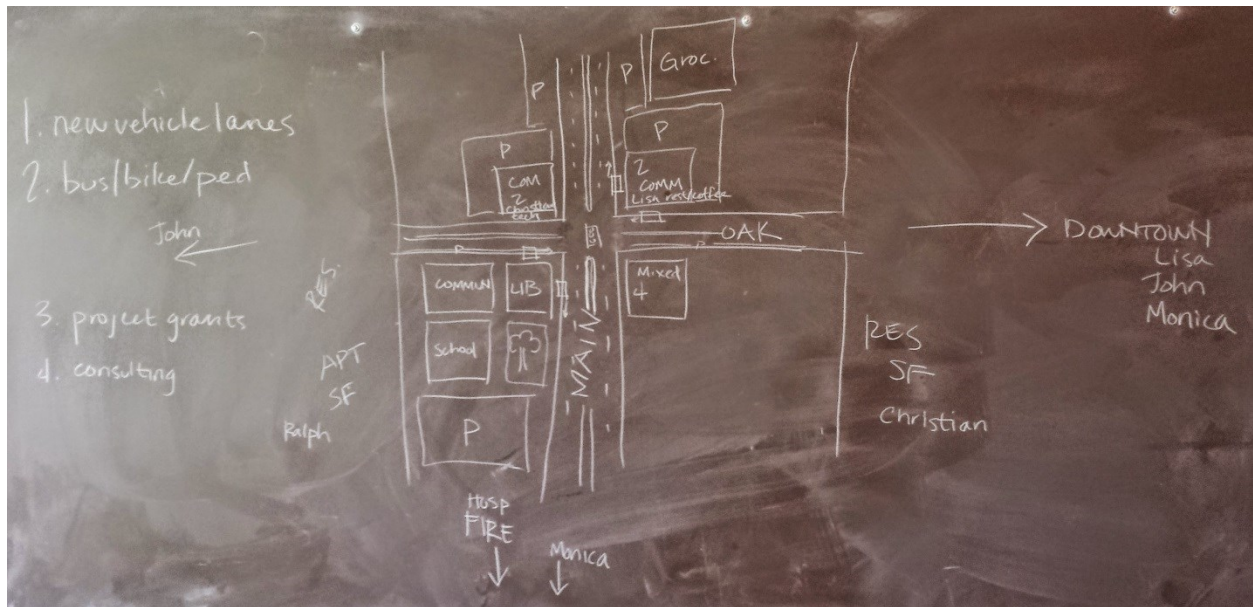 1. new vehicle lanes
2. bus/bike/ped
John
3 project grants
4. consulting
RES.
APT
SF
Ralph
P
P
Groc.
P
COM
2
Christian
tech
P
2
COMM
Lisa rest/coffee
OAK
COMMUN
LIB
Mixed
4
School
MAIN
P
Hosp
FIRE
Monica
DOWNTOWN
Lisa
John
Monica
RES
SF
Christian